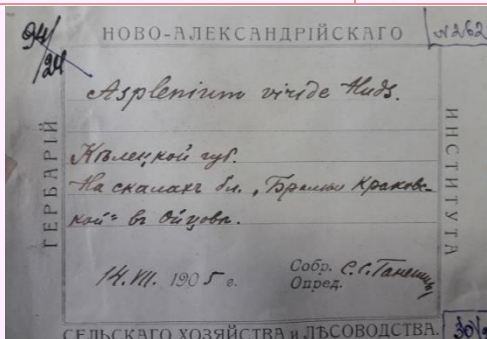 94/24
НОВО-АЛЕКСАНДРІЙСКАГО
№262
ГЕРБАРІЙ
Asplenium viride Huds.
Кѣлецкой губ.
На скалахъ бл. „Брамы Краковской“ въ Ойцовѣ.
14.VII. 1905 г.
Собр. С.С.Ганешинъ
Опред.
ИНСТИТУТА
СЕЛЬСКАГО ХОЗЯЙСТВА и ЛѢСОВОДСТВА.